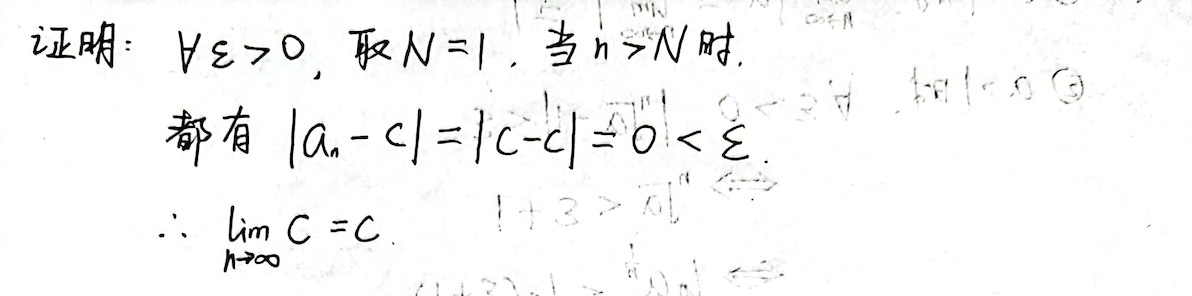 证明: ∀ε>0, 取N=1. 当n>N时.
都有 |aₙ-c|=|c-c|=0<ε.
∴ lim_{n→∞} c=c.